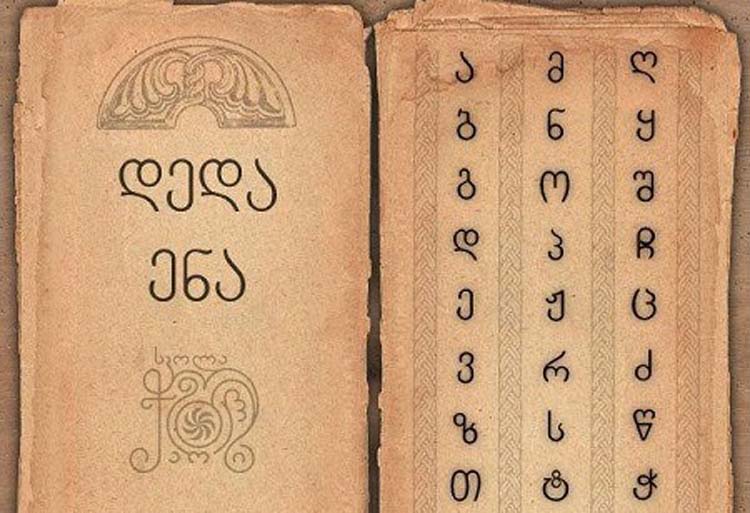 დედა
ენა
სკოლა
ა მ ღ
ბ ნ ყ
გ ო შ
დ პ ჩ
ე ჟ ც
ვ რ ძ
ზ ს წ
თ ტ ჭ